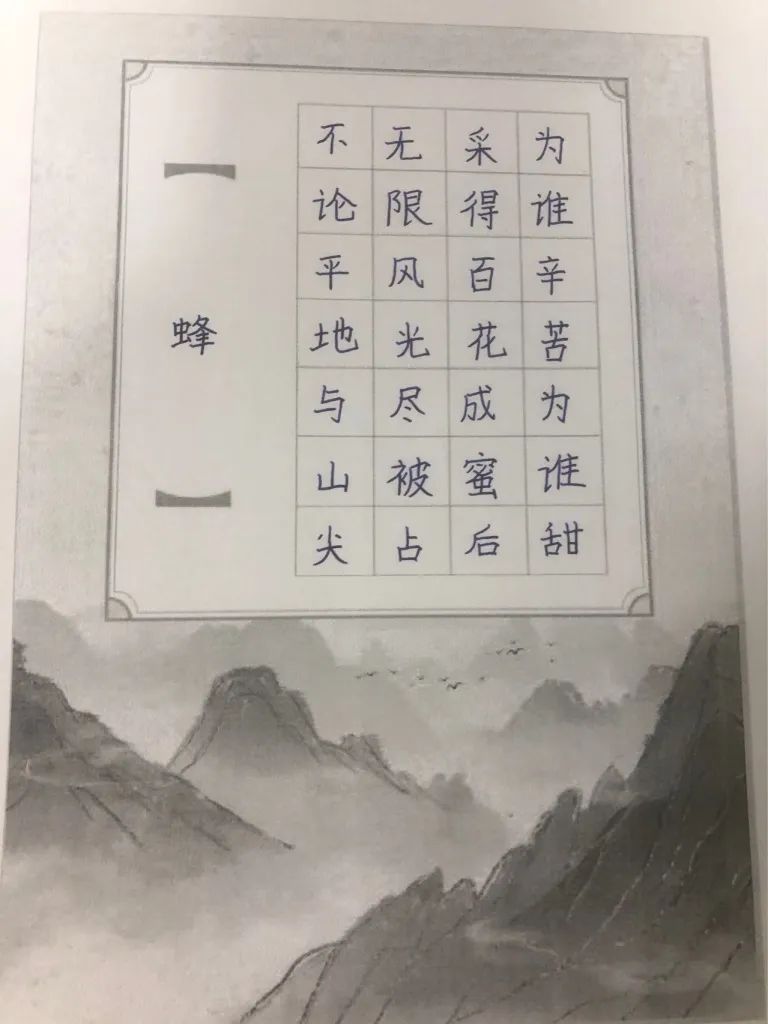 蜂
不论平地与山尖
无限风光尽被占
采得百花成蜜后
为谁辛苦为谁甜